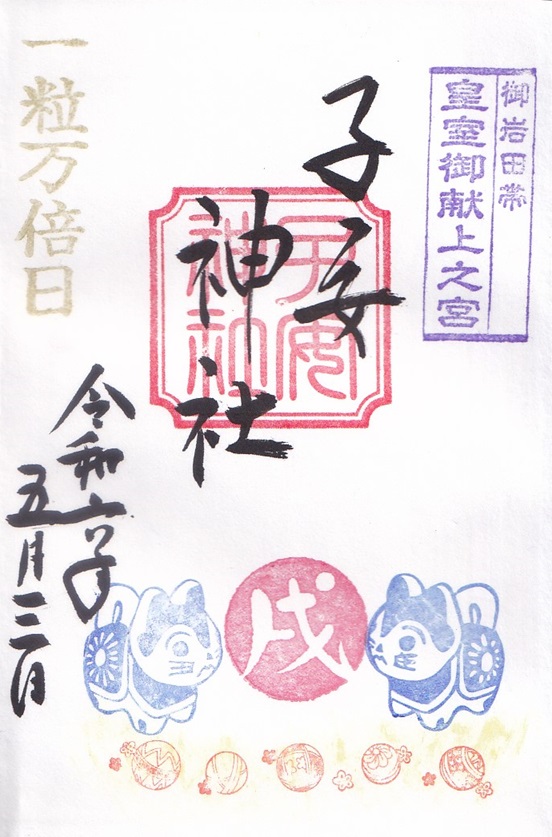 御岩田帯
皇室御献上之宮
子安
神社
子安
神社
一粒万倍日
令和六年
五月二二日
戌